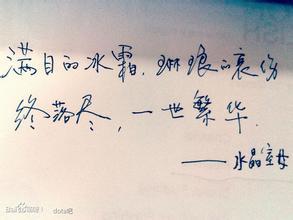 满目的冰霜,琳琅的哀伤
终落尽,一世繁华.
——水晶室女
dota吧